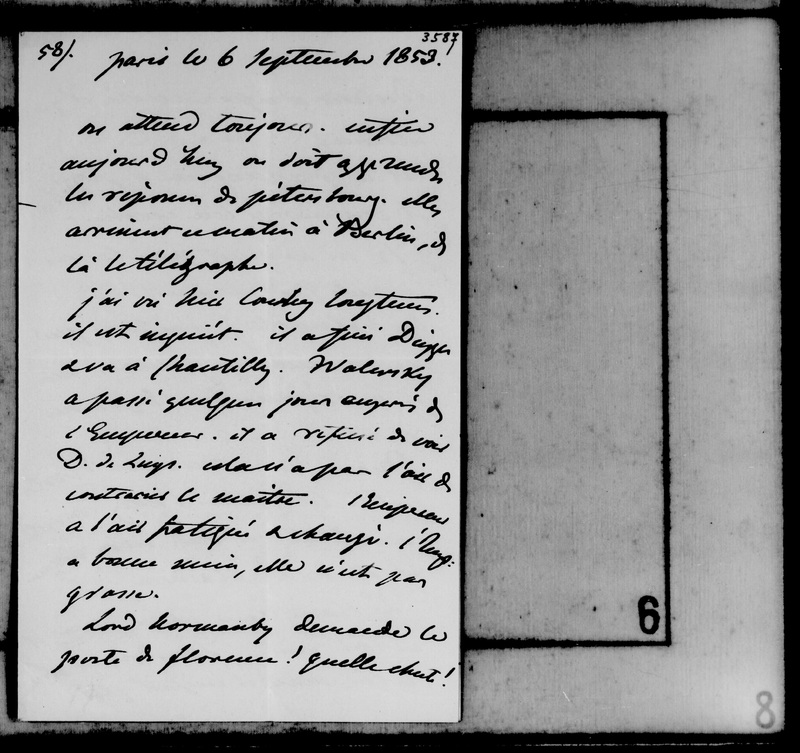 58/.
3587
paris le 6 Septembre 1853.
on attend toujours. enfin
aujourd'huy on doit apprendre
les réponses de pétersbourg. elles
arrivent ce matin à Berlin, de
là le télégraphe.
j'ai vu hier Cowley longtems.
il est inquiet. il a fini Dieppe
& va à Chantilly. Walewsky
a passé quelques jours auprès de
l'Empereur. il a refusé de voir
D. de Luys. cela n'a pas l'air de
contrarier le maitre. l'Empereur
a l'air fatigué & changé. l'Imp:
a bonne mine, elle n'est pas
grosse.
Lord Normanby demande le
poste de florence ! quelle chute !
6
8